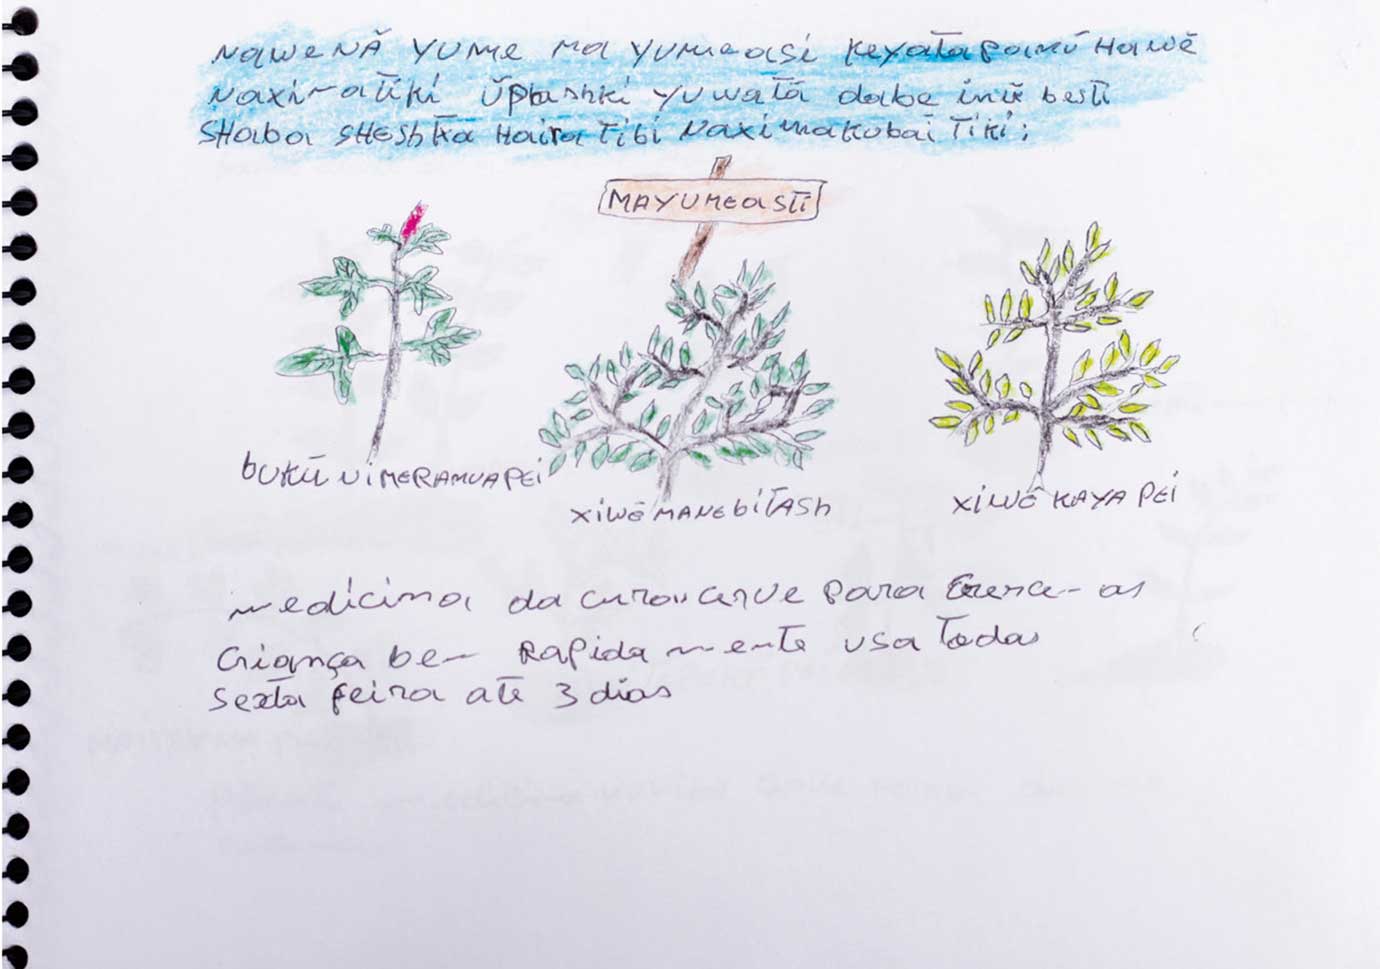 NAWENÃ YUME MA YUMEASI KEYATAPANŨ HAWẼ
NAXIMATIKI ŨPASHKI YUWATÃ dabe inũ besti
SHABA SHESHTXA HAIRA TIBI NAXIMAKUBAI TIKI;
MAYUMEASTI
BUKŨ NIMERAMUAPEI
XIWẼ MANEBITASH
XIWẼ KAYA PEI
medicina da para as
criança bem Rapida mente usa todas
sexta feira até 3 dias